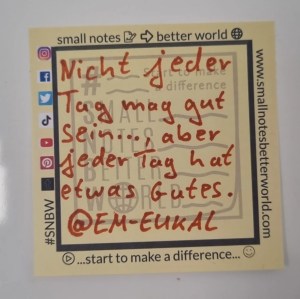 small notes better world
Nicht jeder
Tag mag gut
sein..., aber
jeder Tag hat
etwas Gutes.
@EM-EUKAL
# Start to make
difference
SMALL
NOTES
BETTER
WORLD
www.smallnotesbetterworld.com
#SNBW
...start to make a difference...